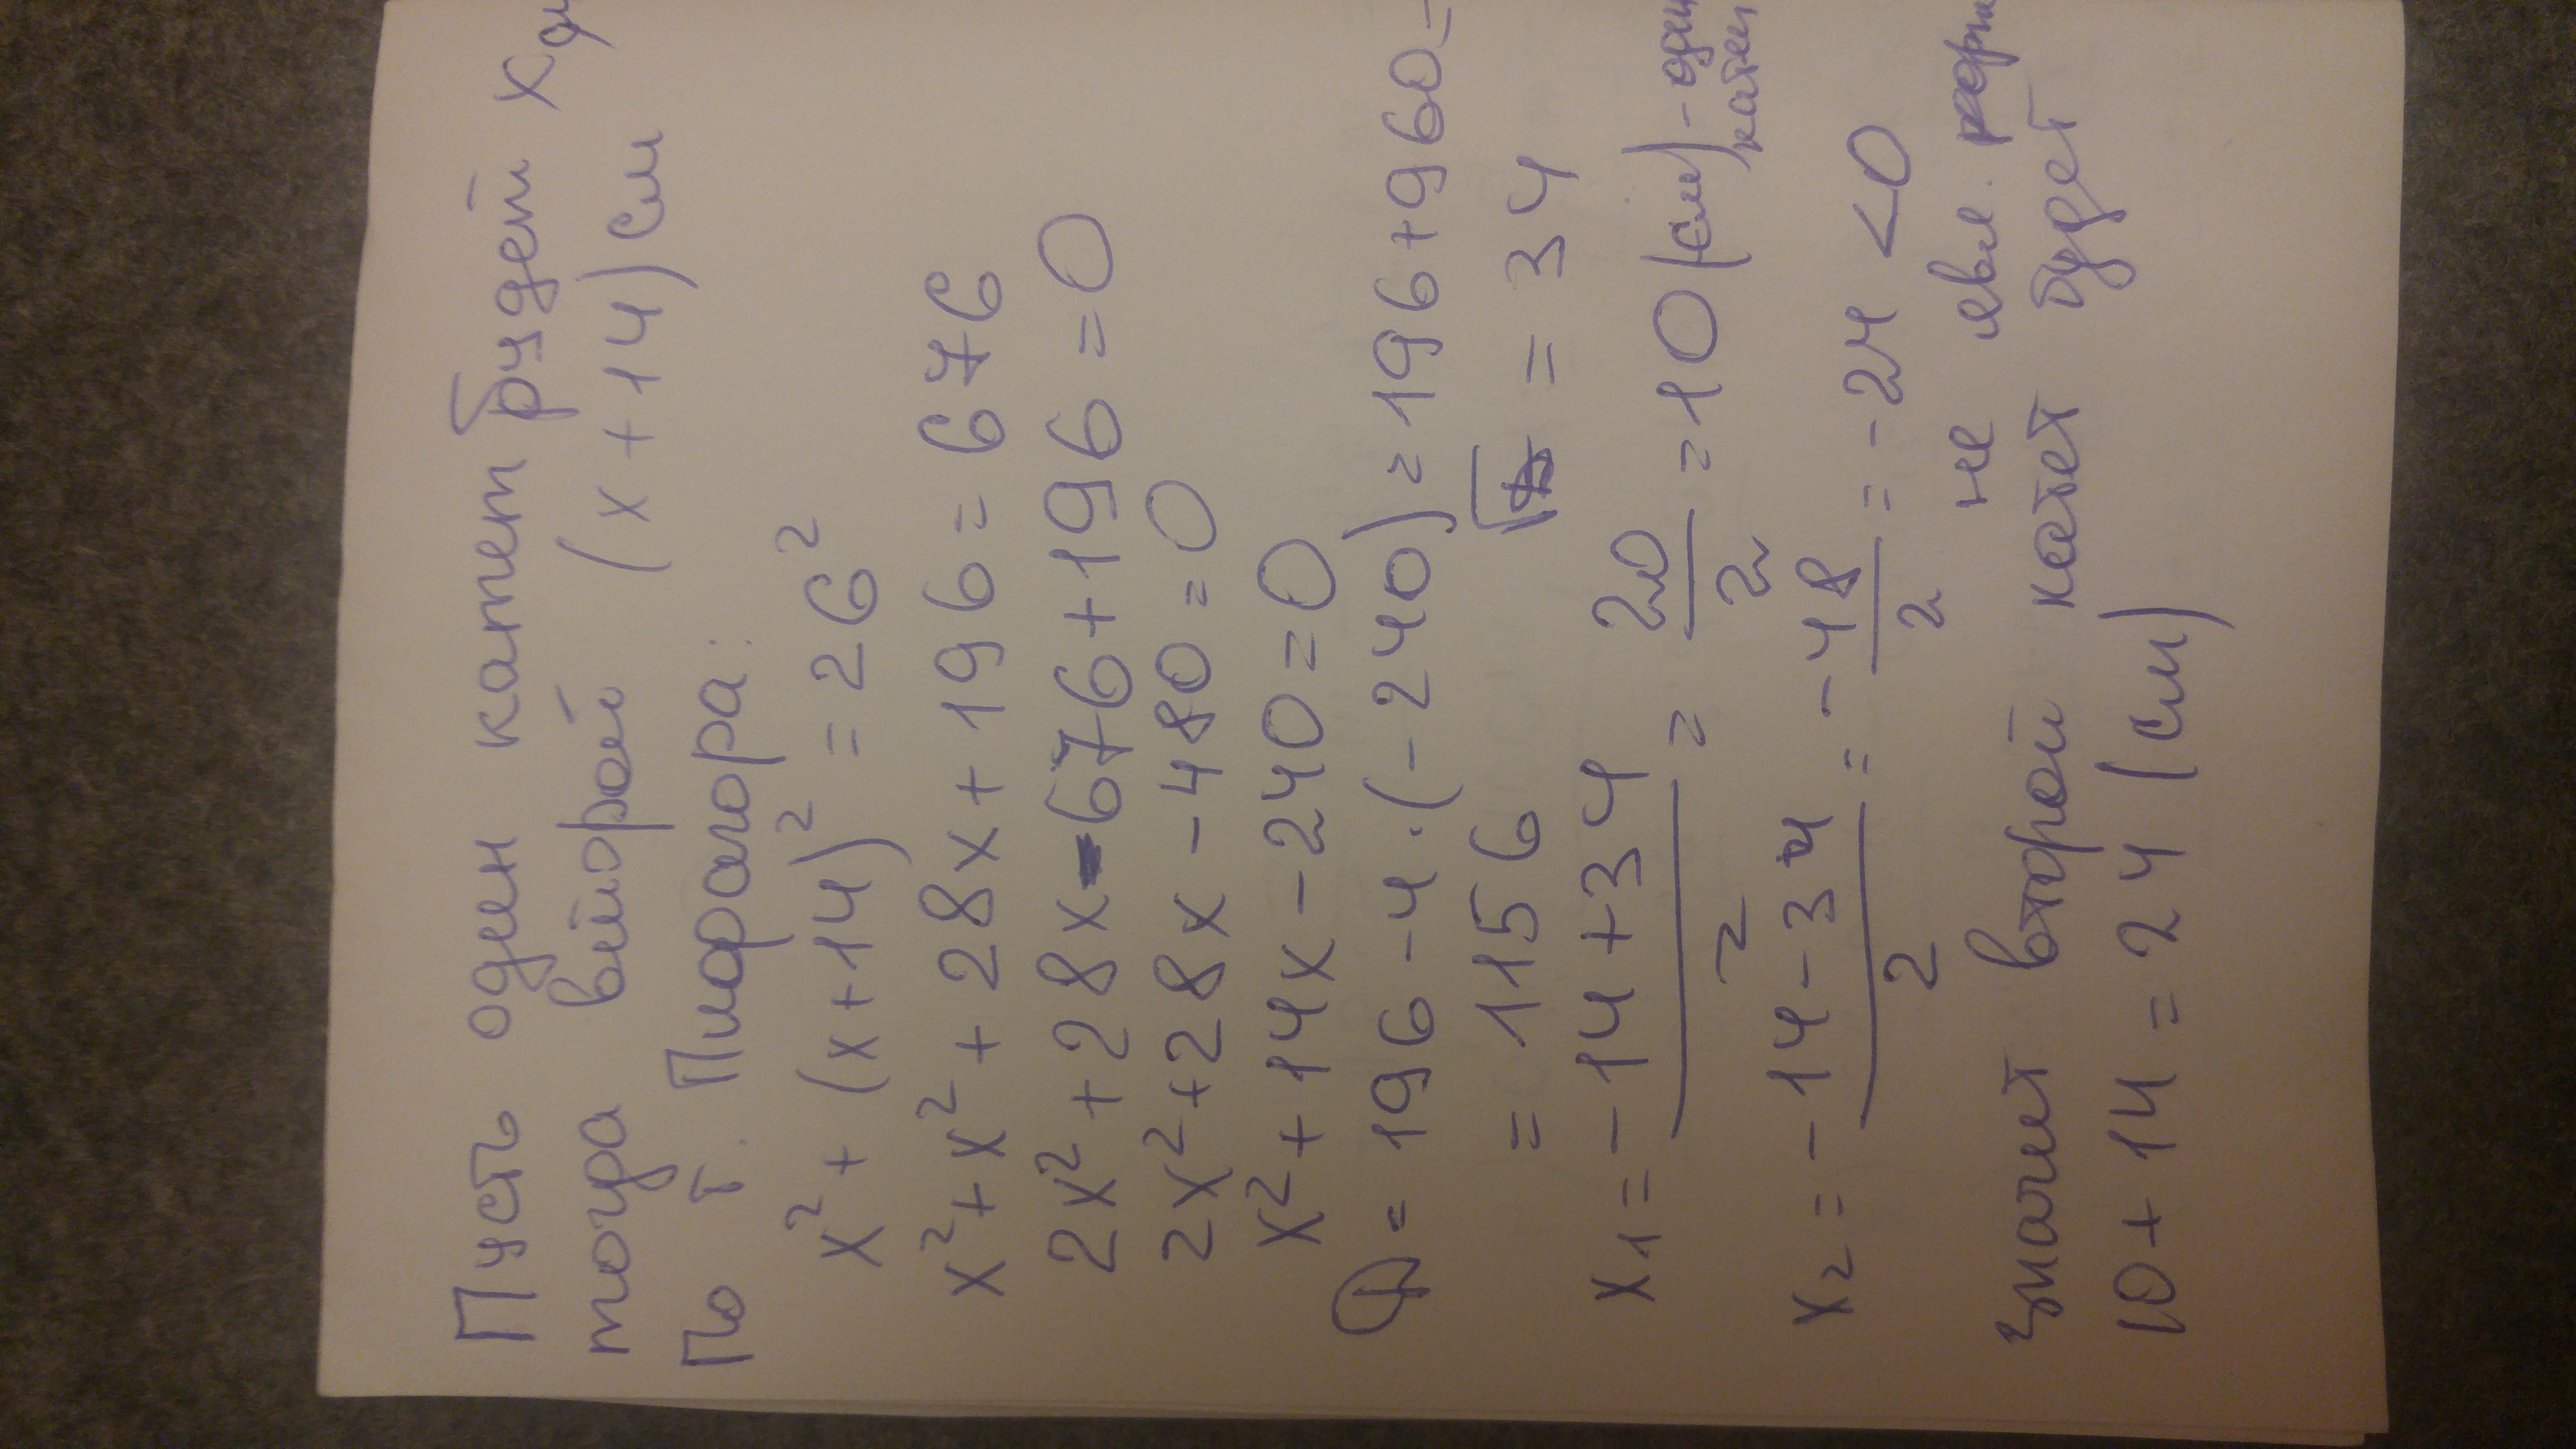 Пусть один катет будет x
тогда второй (x+14) см
По т. Пифагора:
x² + (x+14)² = 26²
x² + x² + 28x + 196 = 676
2x² + 28x - 676 + 196 = 0
2x² + 28x - 480 = 0
x² + 14x - 240 = 0
D = 196 - 4·(-240) = 196 + 960 =
= 1156 √ = 34
x₁ = -14+34/2 = 20/2 = 10 (см) - один катет
x₂ = -14-34/2 = -48/2 = -24 < 0
не явл.
значит второй катет будет
10 + 14 = 24 (см)